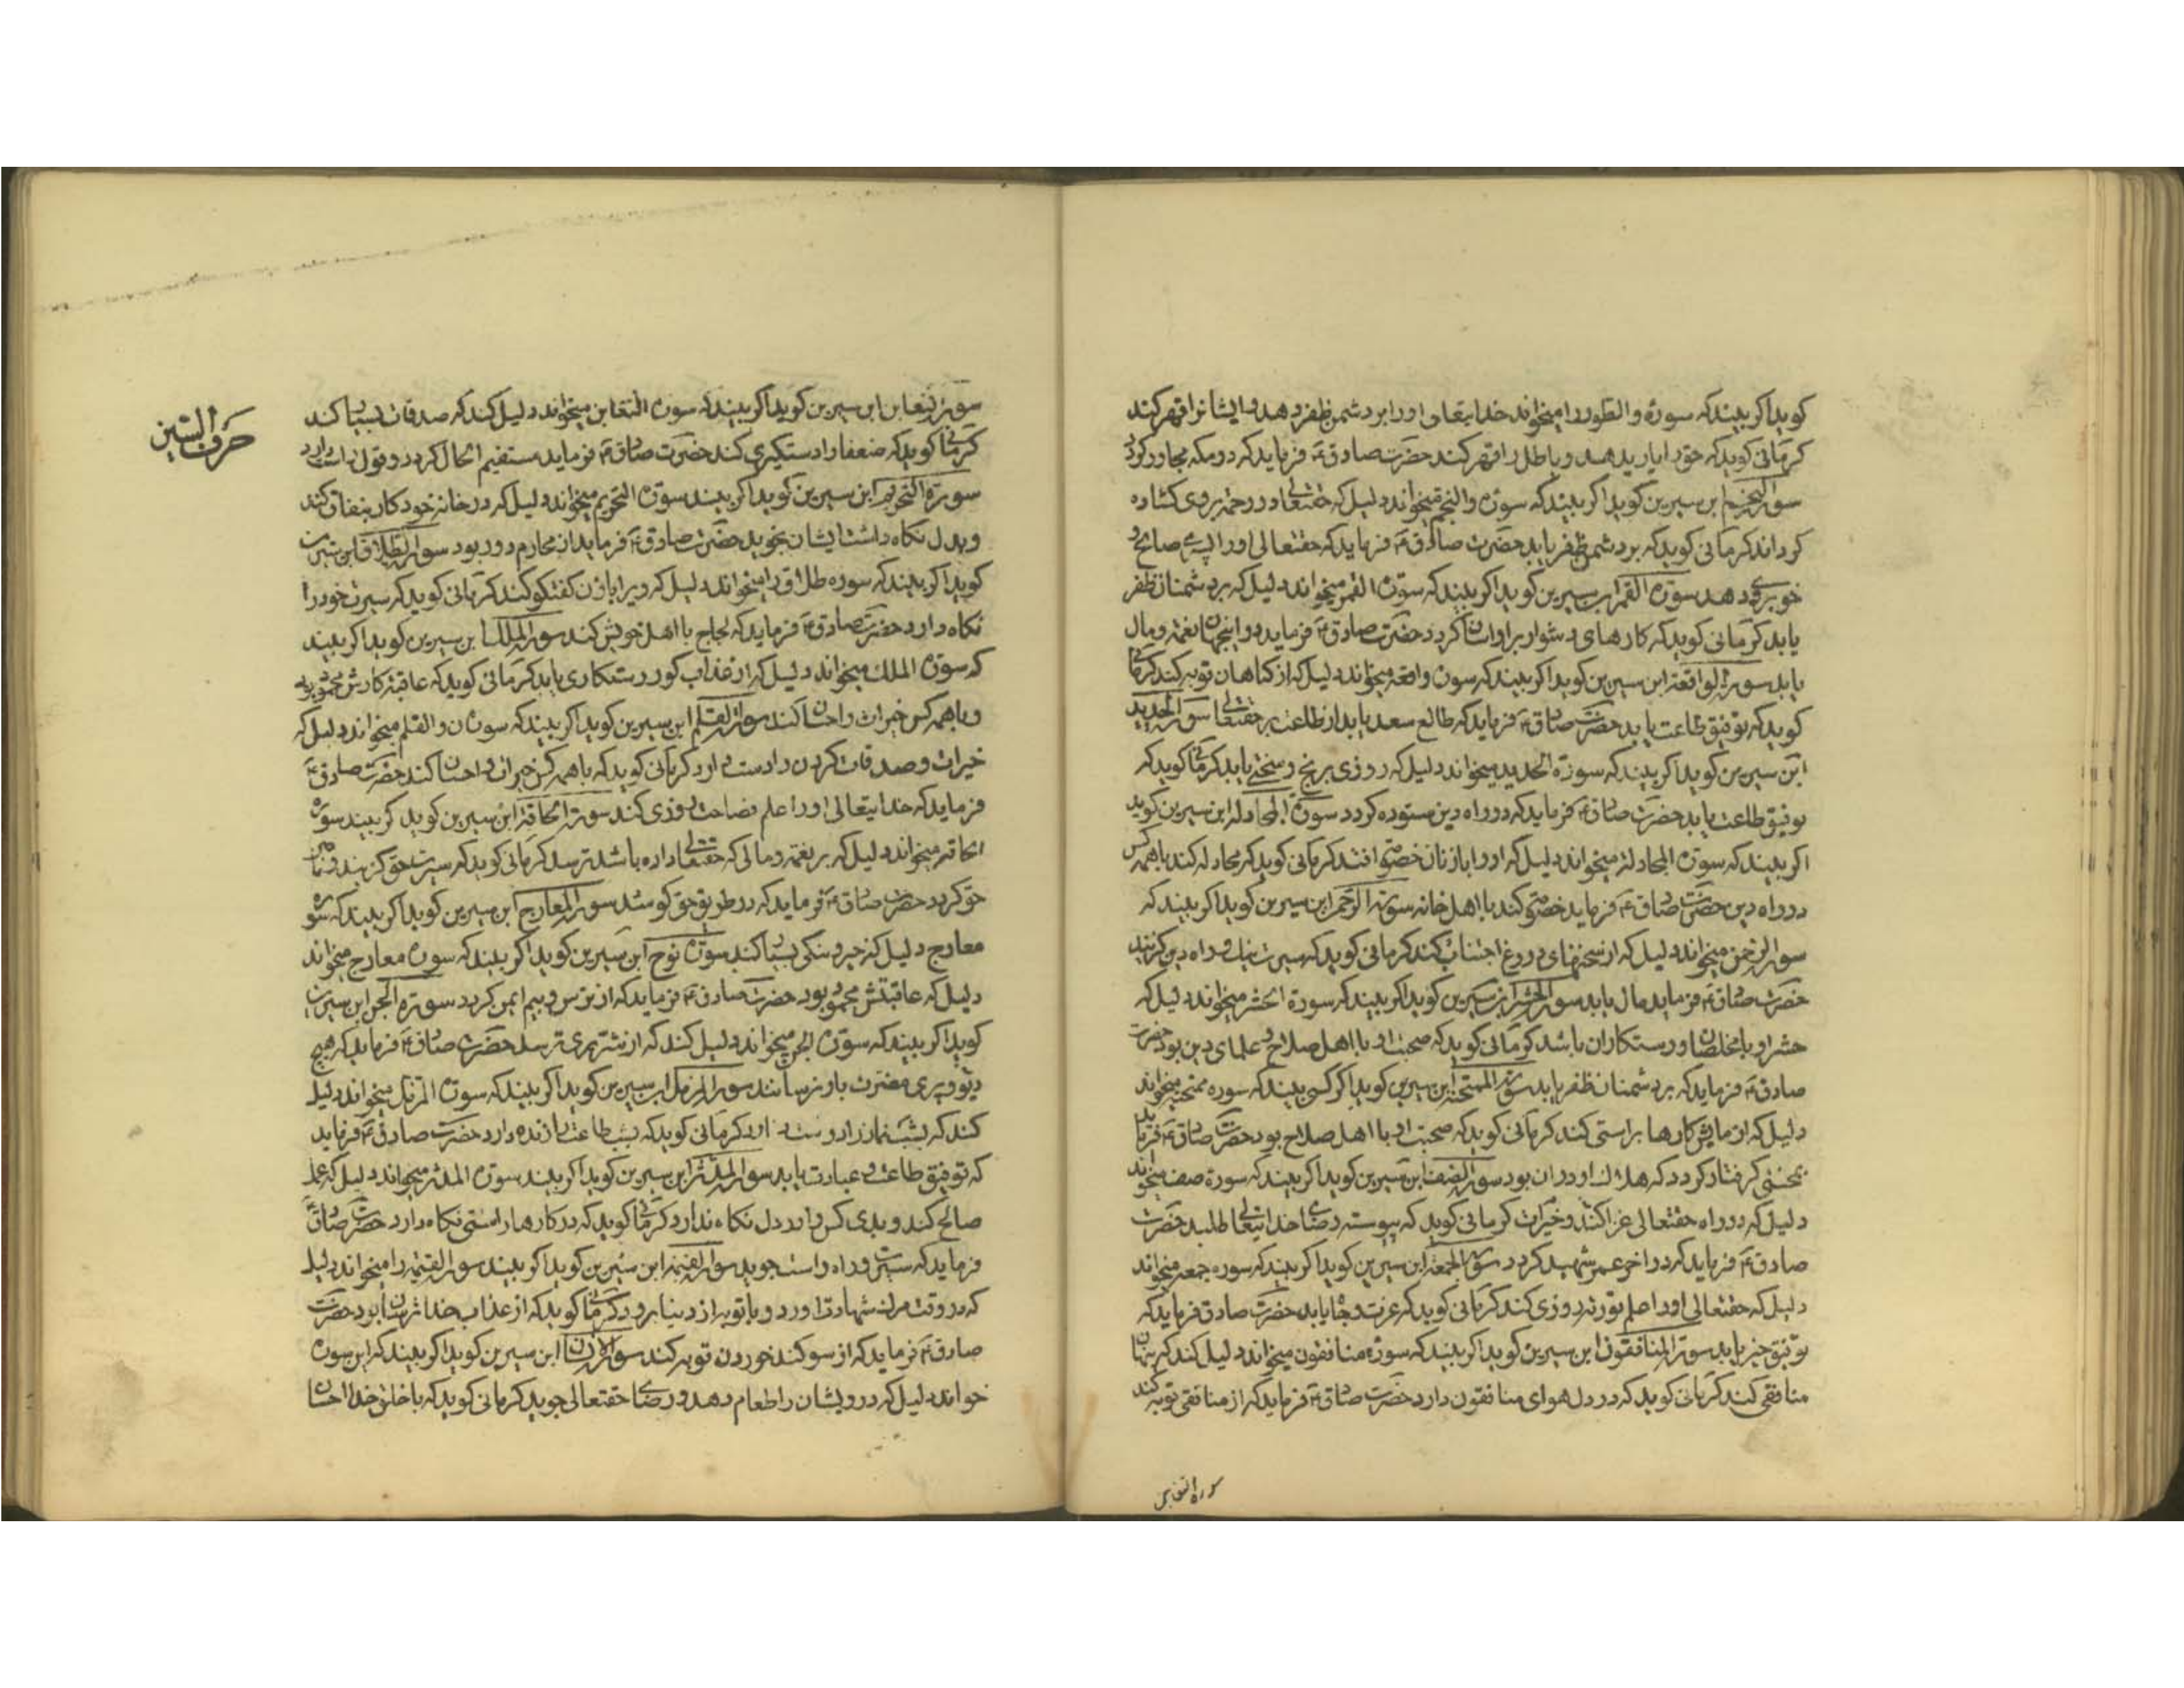 کوید اکر بیند که سورهٔ والطور را میخواند خدایتعالی اورا بر دشمن ظفر دهد و ایشانرا قهر کند
کرمانی کوید که حق را یاری دهد و باطل را قهر کند حضرت صادق ع فرماید که در مکه مجاور کردد
سورة النجم ابن سیرین کوید اکر بیند که سورۀ والنجم میخواند دلیل که حقتعالی در رحمت بروی کشاده
کرداند کرمانی کوید که بر دشمن ظفر یابد حضرت صادق ع فرماید که حقتعالی اورا پسری صالح و
خوبروی دهد سورة القمر ابن سیرین کوید اکر بیند که سورۀ القمر میخواند دلیل که بر دشمنان ظفر
یابد کرمانی کوید که کارهای دشوار بر او آسان کردد حضرت صادق ع فرماید در اینجهان نعمت و مال
یابد سورة الواقعة ابن سیرین کوید اکر بیند که سورۀ واقعه میخواند دلیل که از کناهان توبه کند کرمانی
کوید که توفیق طاعت یابد حضرت صادق ع فرماید که طالع سعد یابد از طاعت بر حقتعالی سورة الحدید
ابن سیرین کوید اکر بیند که سورة الحدید میخواند دلیل که روزی برنج و سختی یابد کرمانی کوید که
توفیق طاعت یابد حضرت صادق ع فرماید که در راه دین ستوده کردد سورة المجادله ابن سیرین کوید
اکر بیند که سورة المجادله میخواند دلیل که اورا با زنان خصومت افتد کرمانی کوید که مجادله کند با همه کس
در راه دین حضرت صادق ع فرماید خصومت کند با اهل خانه سورة الرحمن ابن سیرین کوید اکر بیند که
سورة الرحمن میخواند دلیل که از سخنهای دروغ اجتناب کند کرمانی کوید که سیرت نیک و راه دین کزیند
حضرت صادق ع فرماید مال یابد سورة الحشر ابن سیرین کوید اکر بیند که سورة الحشر میخواند دلیل که
حشر او با مخلصان و رستکاران باشد کرمانی کوید که صحبت او با اهل صلاح و علمای دین بود حضرت
صادق ع فرماید که بر دشمنان ظفر یابد سورة الممتحنه ابن سیرین کوید اکر کسی بیند که سوره ممتحنه میخواند
دلیل که آزمایش کارها براستی کند کرمانی کوید که صحبت او با اهل صلاح بود حضرت صادق ع فرماید
بمحنتی کرفتار کردد که هلاک او در ان بود سورة الصف ابن سیرین کوید اکر بیند که سورة صف میخواند
دلیل که در راه حقتعالی غزا کند و خیرات کرمانی کوید که پیوسته رضای خدایتعالی طلبد حضرت
صادق ع فرماید که در آخر عمر شهید کردد سورة الجمعه ابن سیرین کوید اکر بیند که سوره جمعه میخواند
دلیل که حقتعالی اورا علم روزی کند کرمانی کوید که عزت و جاه یابد حضرت صادق فرماید که
توفیق خیر یابد سورة المنافقون ابن سیرین کوید اکر بیند که سورۀ منافقون میخواند دلیل کند که پنهان
منافقی کند کرمانی کوید که در دل هوای منافقون دارد حضرت صادق ع فرماید که از منافقی توبه کند
سورة التغابن
حرف السین
سورة تغابن ابن سیرین کوید اکر بیند که سورۀ التغابن میخواند دلیل کند که صدقات بسیار کند
کرمانی کوید که ضعفا را دستکیری کند حضرت صادق ع فرماید مستقیم الحال کردد و قول راست دارد
سورة التحریم ابن سیرین کوید اکر بیند سورة التحریم میخواند دلیل که در خانه خود کار بنفاق کند
وبدل نکاه داشت ایشان بجوید حضرت صادق ع فرماید از محارم دور بود سورة الطلاق ابن سیرین
کوید اکر بیند که سوره طلاق را میخواند دلیل که ویرا با زن کفتکو کند کرمانی کوید که سیرت خود را
نکاه دارد حضرت صادق ع فرماید که لجاج با اهل خویش کند سورة الملک ابن سیرین کوید اکر بیند
که سورة الملک میخواند دلیل که از عذاب کور رستکاری یابد کرمانی کوید که عاقبت کارش محمود بود
وبا همه کس خیرات و احسان کند سورة القلم ابن سیرین کوید اکر بیند که سورۀ ن والقلم میخواند دلیل که
خیرات و صدقات کردن را دست دارد کرمانی کوید که با همه کس خیرات و احسان کند حضرت صادق ع
فرماید که خدایتعالی اورا علم فصاحت روزی کند سورة الحاقة ابن سیرین کوید کر بیند سوره
الحاقه میخواند دلیل که بر نعمت و مالی که حقتعالی داده باشد ترسد کرمانی کوید که سیرت حق کزیند
حق کردد حضرت صادق ع فرماید که در طریق حق کوشد سورة المعارج ابن سیرین کوید اکر بیند که سوره
معارج دلیل که خیر و نیکی بسیار کند سورۀ نوح ابن سیرین کوید اکر بیند که سورۀ معارج میخواند
دلیل که عاقبتش محمود بود حضرت صادق ع فرماید که از ترس و بیم ایمن کردد سورة الجن ابن سیرین
کوید اکر بیند که سورۀ الجن میخواند دلیل کند که از شر پری ترسد حضرت صادق ع فرماید که هیچ
دیو و پری مضرت باو نرسانند سورة المزمل ابن سیرین کوید اکر بیند که سورة المزمل میخواند دلیل
کند که بشب نماز را دوست دارد کرمانی کوید که شب طاعت را زنده دارد حضرت صادق ع فرماید
که توفیق طاعت و عبادت یابد سورة المدثر ابن سیرین کوید اکر بیند سورة المدثر میخواند دلیل که عمل
صالح کند و بدی کس را در دل نکاه ندارد کرمانی کوید که در کارها راستی نکاه دارد حضرت صادق ع
فرماید که سیرت و راه راست جوید سورة القیمة ابن سیرین کوید اکر بیند سورة القیمة را میخواند دلیل
که در وقت مرک شهادت آورد و با توبه از دنیا برود کرمانی کوید که از عذاب خدا ترسان بود حضرت
صادق ع فرماید که از سوکند خوردن توبه کند سورة الانسان ابن سیرین کوید اکر بیند که این سورۀ
خواند دلیل که درویشان را طعام دهد و رضای حقتعالی جوید کرمانی کوید که با خلق خدا احسان